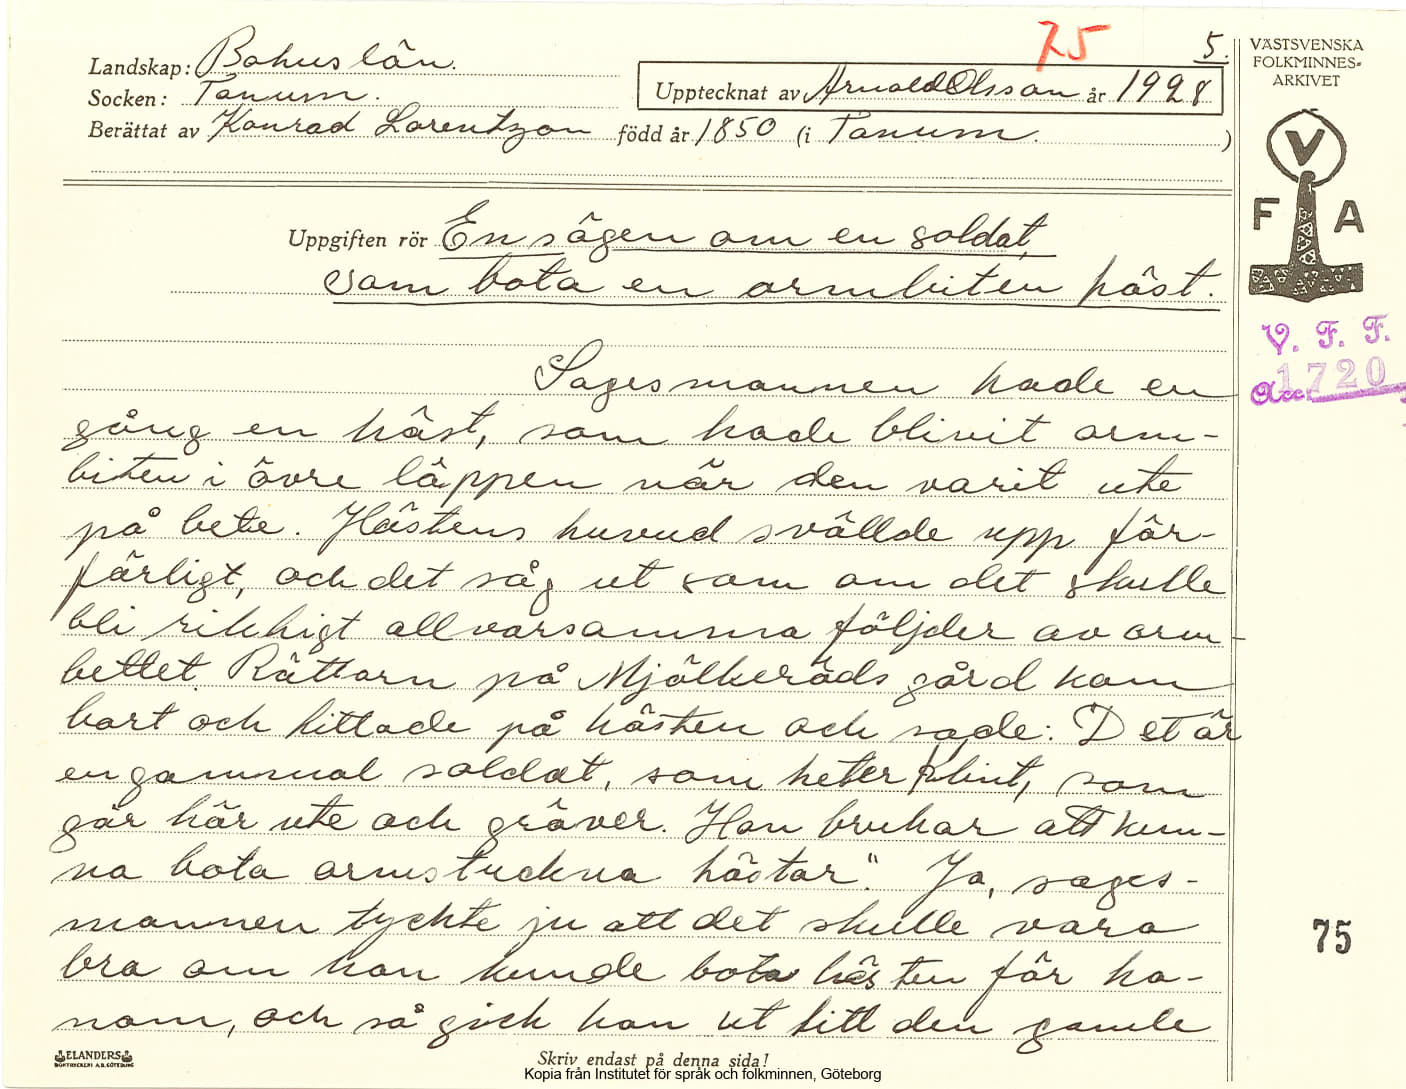 75
5.
Landskap: Bohuslän.
Socken: Tanum.
Upptecknat av Arnold Olsson år 1928
Berättat av Konrad Lorentzon född år 1850 (i Tanum. )
VÄSTSVENSKA
FOLKMINNES-
ARKIVET
V
F A
Uppgiften rör En sägen om en soldat,
som bota en ormbiten häst.
V. F. F.
Acc. 1720
Sagesmannen hade en
gång en häst, som hade blivit orm-
biten i övre läppen när den varit ute
på bete. Hästens huvud svällde upp för-
färligt, och det såg ut som om det skulle
bli rikhigt allvarsamma följder av orm-
bettet. Rättarn på Mjölkeröds gård kom
bort och tittade på hästen och sade: Det är
en gammal soldat, som heter Klint, som
går här ute och gräver. Han brukar att kun-
na bota ormstuckna hästar." Ja, sages-
mannen tyckte ju att det skulle vara
bra om han kunde bota hästen för ho-
nom, och så gick han ut till den gamle
75
ELANDERS
BOKTRYCKERI A.B. GÖTEBORG
Skriv endast på denna sida!
Kopia från Institutet för språk och folkminnen, Göteborg